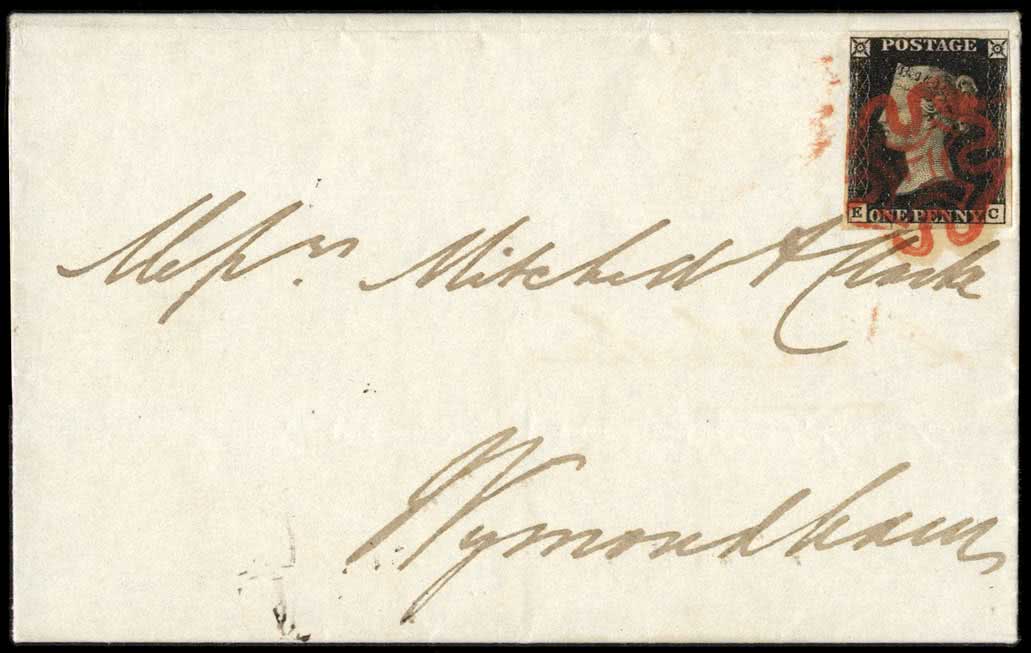 POSTAGE
E ONE PENNY. C
Messrs. Mitchell & Clarke
Wymondham